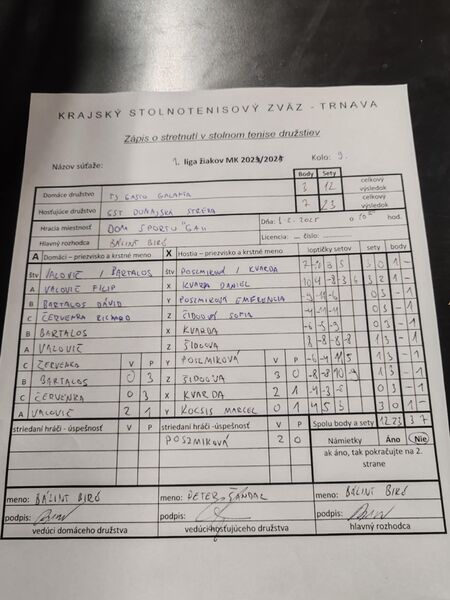 KRAJSKÝ STOLNOTENISOVÝ ZVÄZ - TRNAVA
Zápis o stretnutí v stolnom tenise družstiev
Názov súťaže: 1. liga žiakov MK 2023/2024 Kolo: 9.
Body Sety
Domáce družstvo TJ GASTO GALANTA 3 12 celkový výsledok
Hosťujúce družstvo GST DUNAJSKÁ STREDA 7 23 celkový výsledok
Hracia miestnosť DOM SPORTU "GA" Dňa: o hod.
Hlavný rozhodca BÁLINT BIRÓ Licencia: – číslo:
A Domáci – priezvisko a krstné meno X Hostia – priezvisko a krstné meno loptičky setov sety body
štv VALOVIČ / BARTALOS štv POSZMIKOVÁ / KVARDA 3 0 1 -
A VALOVIČ FILIP X KVARDA DANIEL 3 2 1 -
B BARTALOS DÁVID Y POSZMIKOVÁ EMERENCIA 0 3 - 1
C ČERVENKA RICHARD Z ŽIDOOVÁ SOFIA 0 3 - 1
B BARTALOS X KVARDA -6 -8 -9 0 3 - 1
A VALOVIČ Z ŽIDOOVÁ -8 -8 8 -8 1 3 - 1
C ČERVENKA V P Y POSZMIKOVÁ V P 1 3 - 1
B BARTALOS 0 3 Z ŽIDOOVÁ 3 0 -8 -8 10 1 3 - 1
C ČERVENKA 0 3 X KVARDA 2 1 0 3 - 1
A VALOVIČ 2 1 Y KOCSIS MARCEL 0 1 4 5 3 3 0 1 -
striedaní hráči -úspešnosť V P striedaní hráči - úspešnosť V P Spolu body a sety 12 23 3 7
POSZMIKOVÁ 2 0 Námietky Áno Nie
ak áno, tak pokračujte na 2. strane
meno: BÁLINT BIRÓ meno: PETER ŠÁNDAL meno: BÁLINT BIRÓ
podpis: podpis: podpis:
vedúci domáceho družstva vedúci hosťujúceho družstva hlavný rozhodca